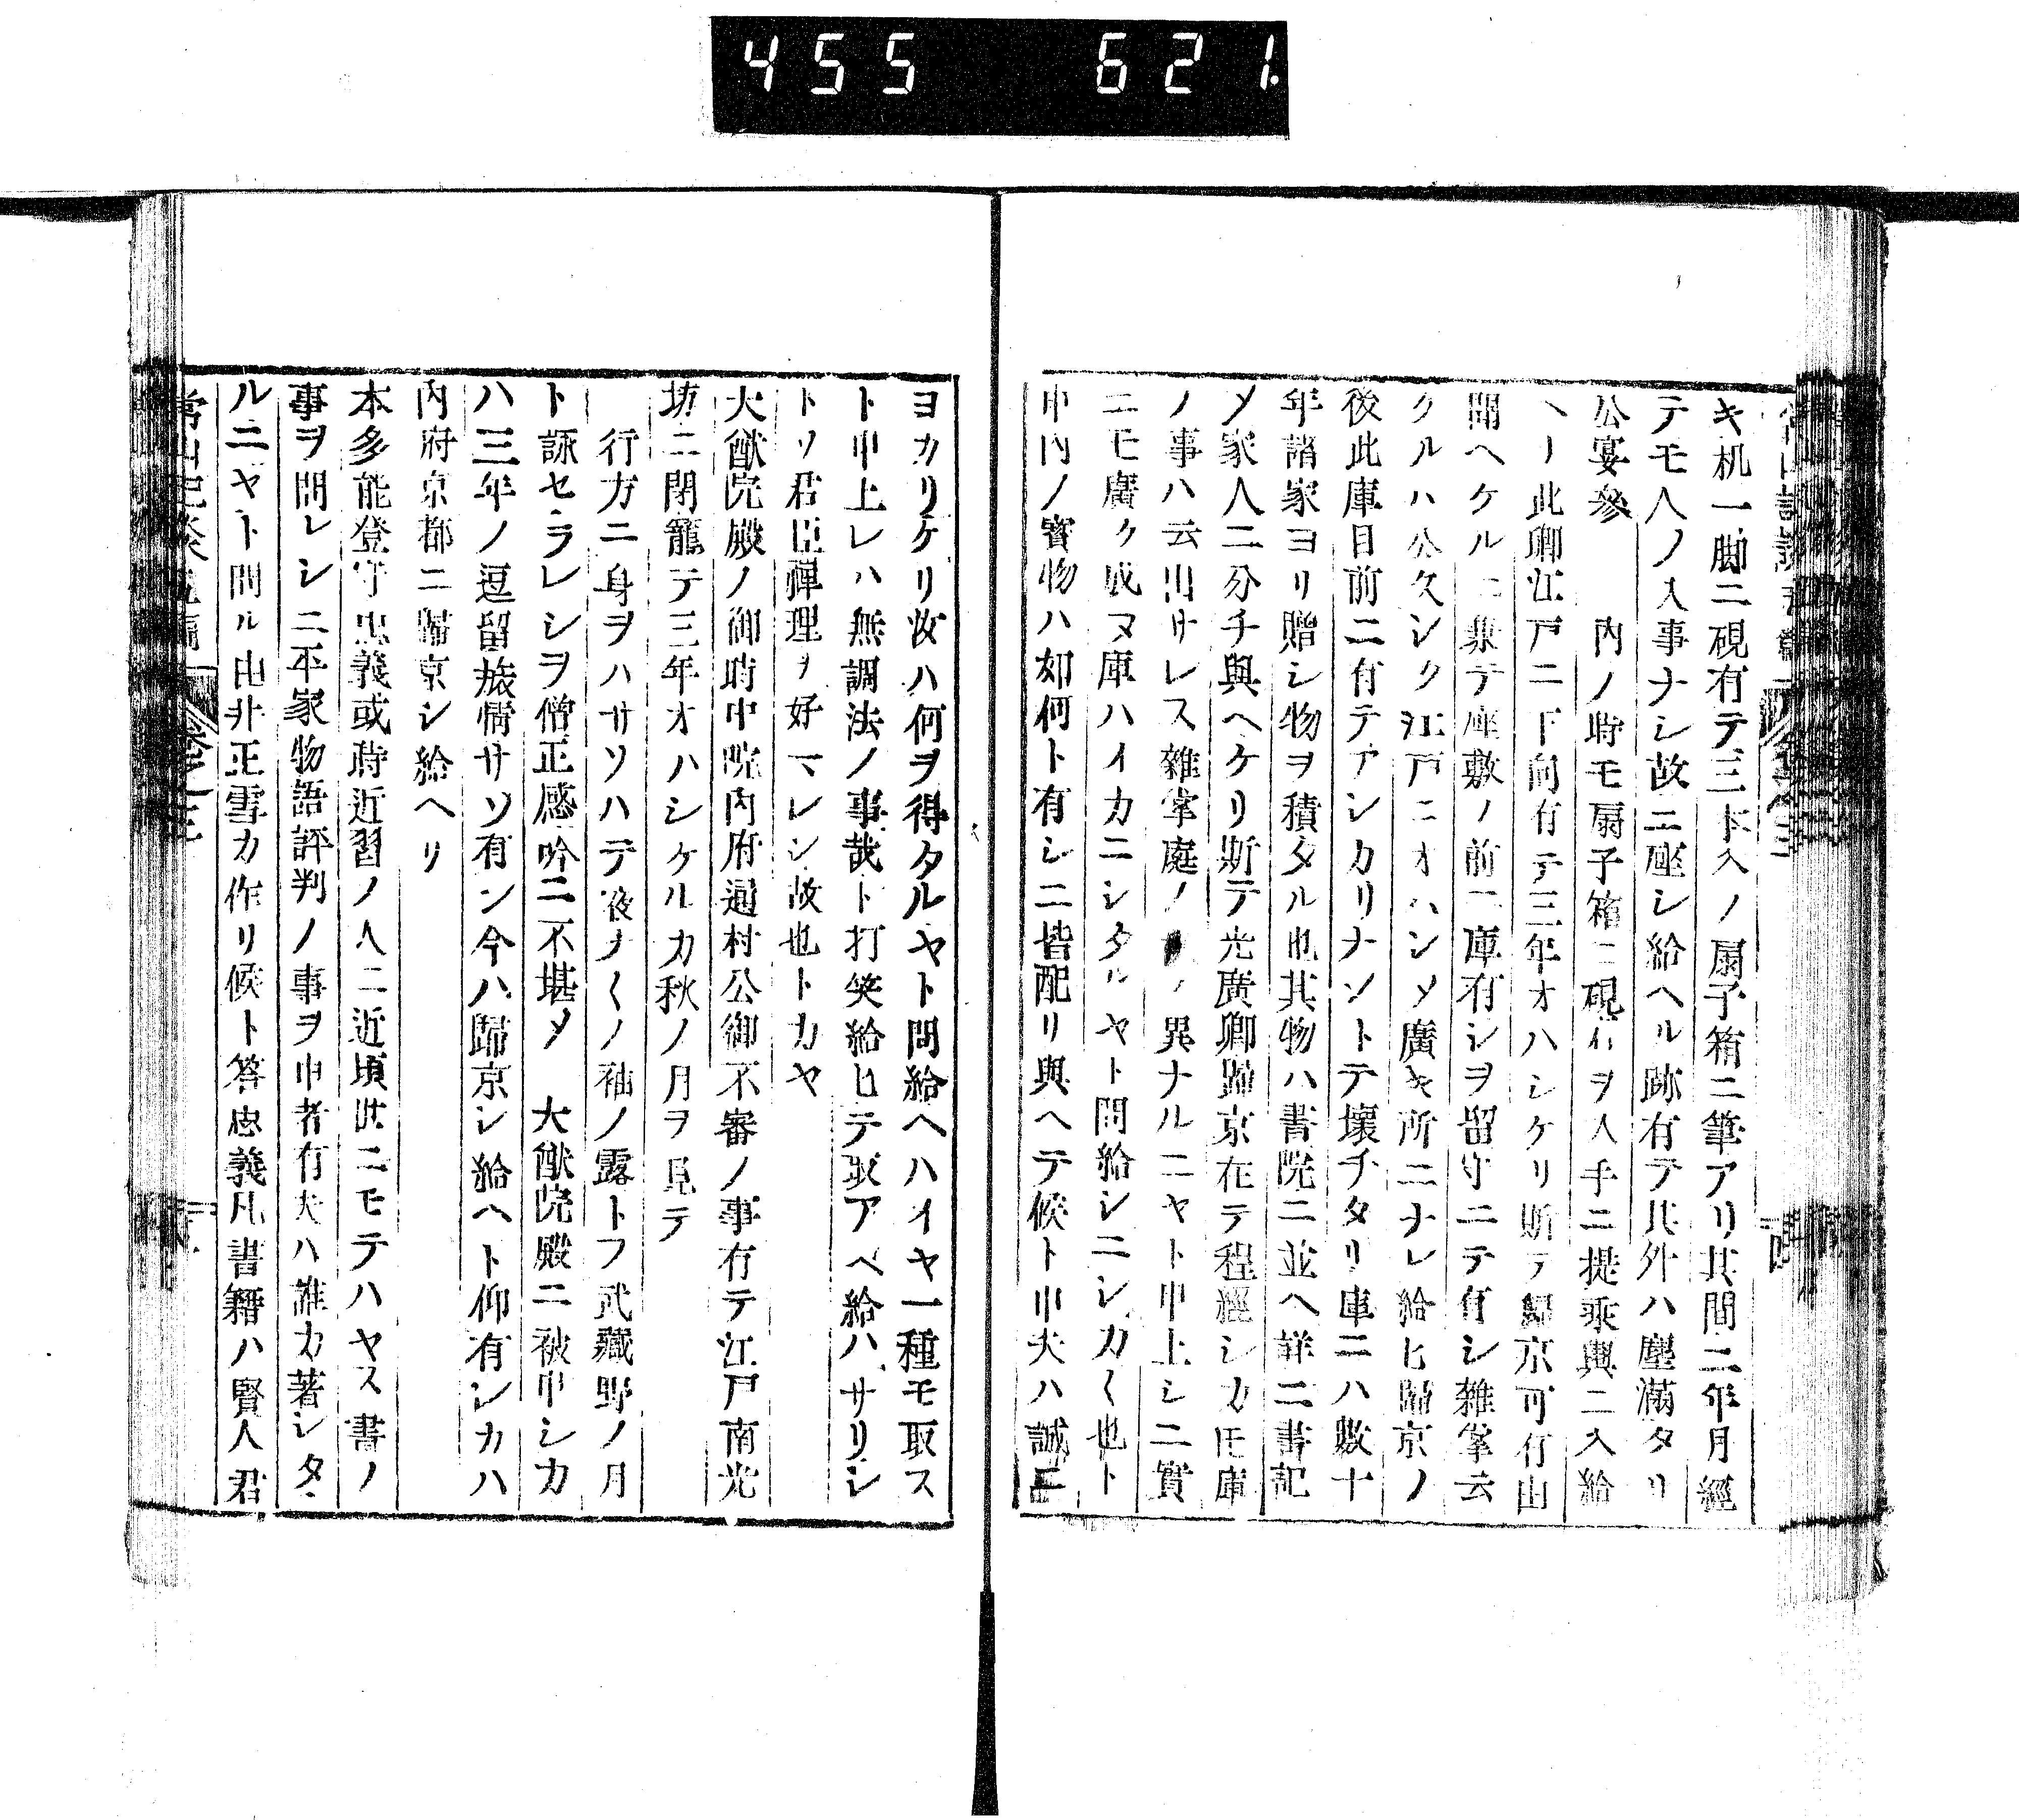 455 621.
キ机一脚ニ硯有テ三本入ノ扇子箱ニ筆アリ其間ニ年月經
テモ人ノ入事ナシ故ニ座シ給ヘル跡有テ其外ハ塵滿タリ
公宴參 内ノ時モ扇子箱ニ硯 ヲ入手ニ提乘輿ニ入給
ヘリ此卿江戸ニ下向有テ三年オハシケリ斯テ歸京可有由
聞ヘケルニ兼テ座敷ノ前ニ庫有シヲ留守ニテ有シ雜掌云
クルハ公久シク江戸ニオハシメ廣キ所ニナレ給ヒ歸京ノ
後此庫目前ニ有テアシカリナントテ壞チタリ庫ニハ數十
年諸家ヨリ贈シ物ヲ積タル也其物ハ書院ニ並ヘ詳ニ書記
メ家人ニ分チ與ヘケリ斯テ光廣卿歸京在テ程經シカ𪜈庫
ノ事ハ云出サレス雜掌庭ノ 異ナルニヤト申上シニ實
ニモ廣ク成ヌ庫ハイカニシタルヤト問給シニシカ〱也ト
申内ノ寳物ハ如何ト有シニ皆配リ與ヘテ候ト申夫ハ誠ニ
ヨカリケリ汝ハ何ヲ得タルヤト問給ヘハイヤ一種モ取ス
ト申上レハ無調法ノ事哉ト打笑給ヒテ取アヘ給ハサリシ
トソ君臣禪理ヲ好マレシ故也トカヤ
大猷院殿ノ御時中院内府通村公御不審ノ事有テ江戸南光
坊ニ閉籠テ三年オハシケルカ秋ノ月ヲ見テ
行方ニ身ヲハサソハテ夜ナ〱ノ袖ノ露トフ武藏野ノ月
ト詠セラレシヲ僧正感吟ニ不堪メ 大猷院殿ニ被申シカ
ハ三年ノ逗留旅情サソ有ン今ハ歸京シ給ヘト仰有シカハ
内府京都ニ歸京シ給ヘリ
本多能登守忠義或時近習ノ人ニ近頃世ニモテハヤス書ノ
事ヲ問レシニ平家物語評判ノ事ヲ申者有夫ハ誰カ著シタ
ルニヤト問ル由井正雪カ作リ候ト答忠義凡書籍ハ賢人君